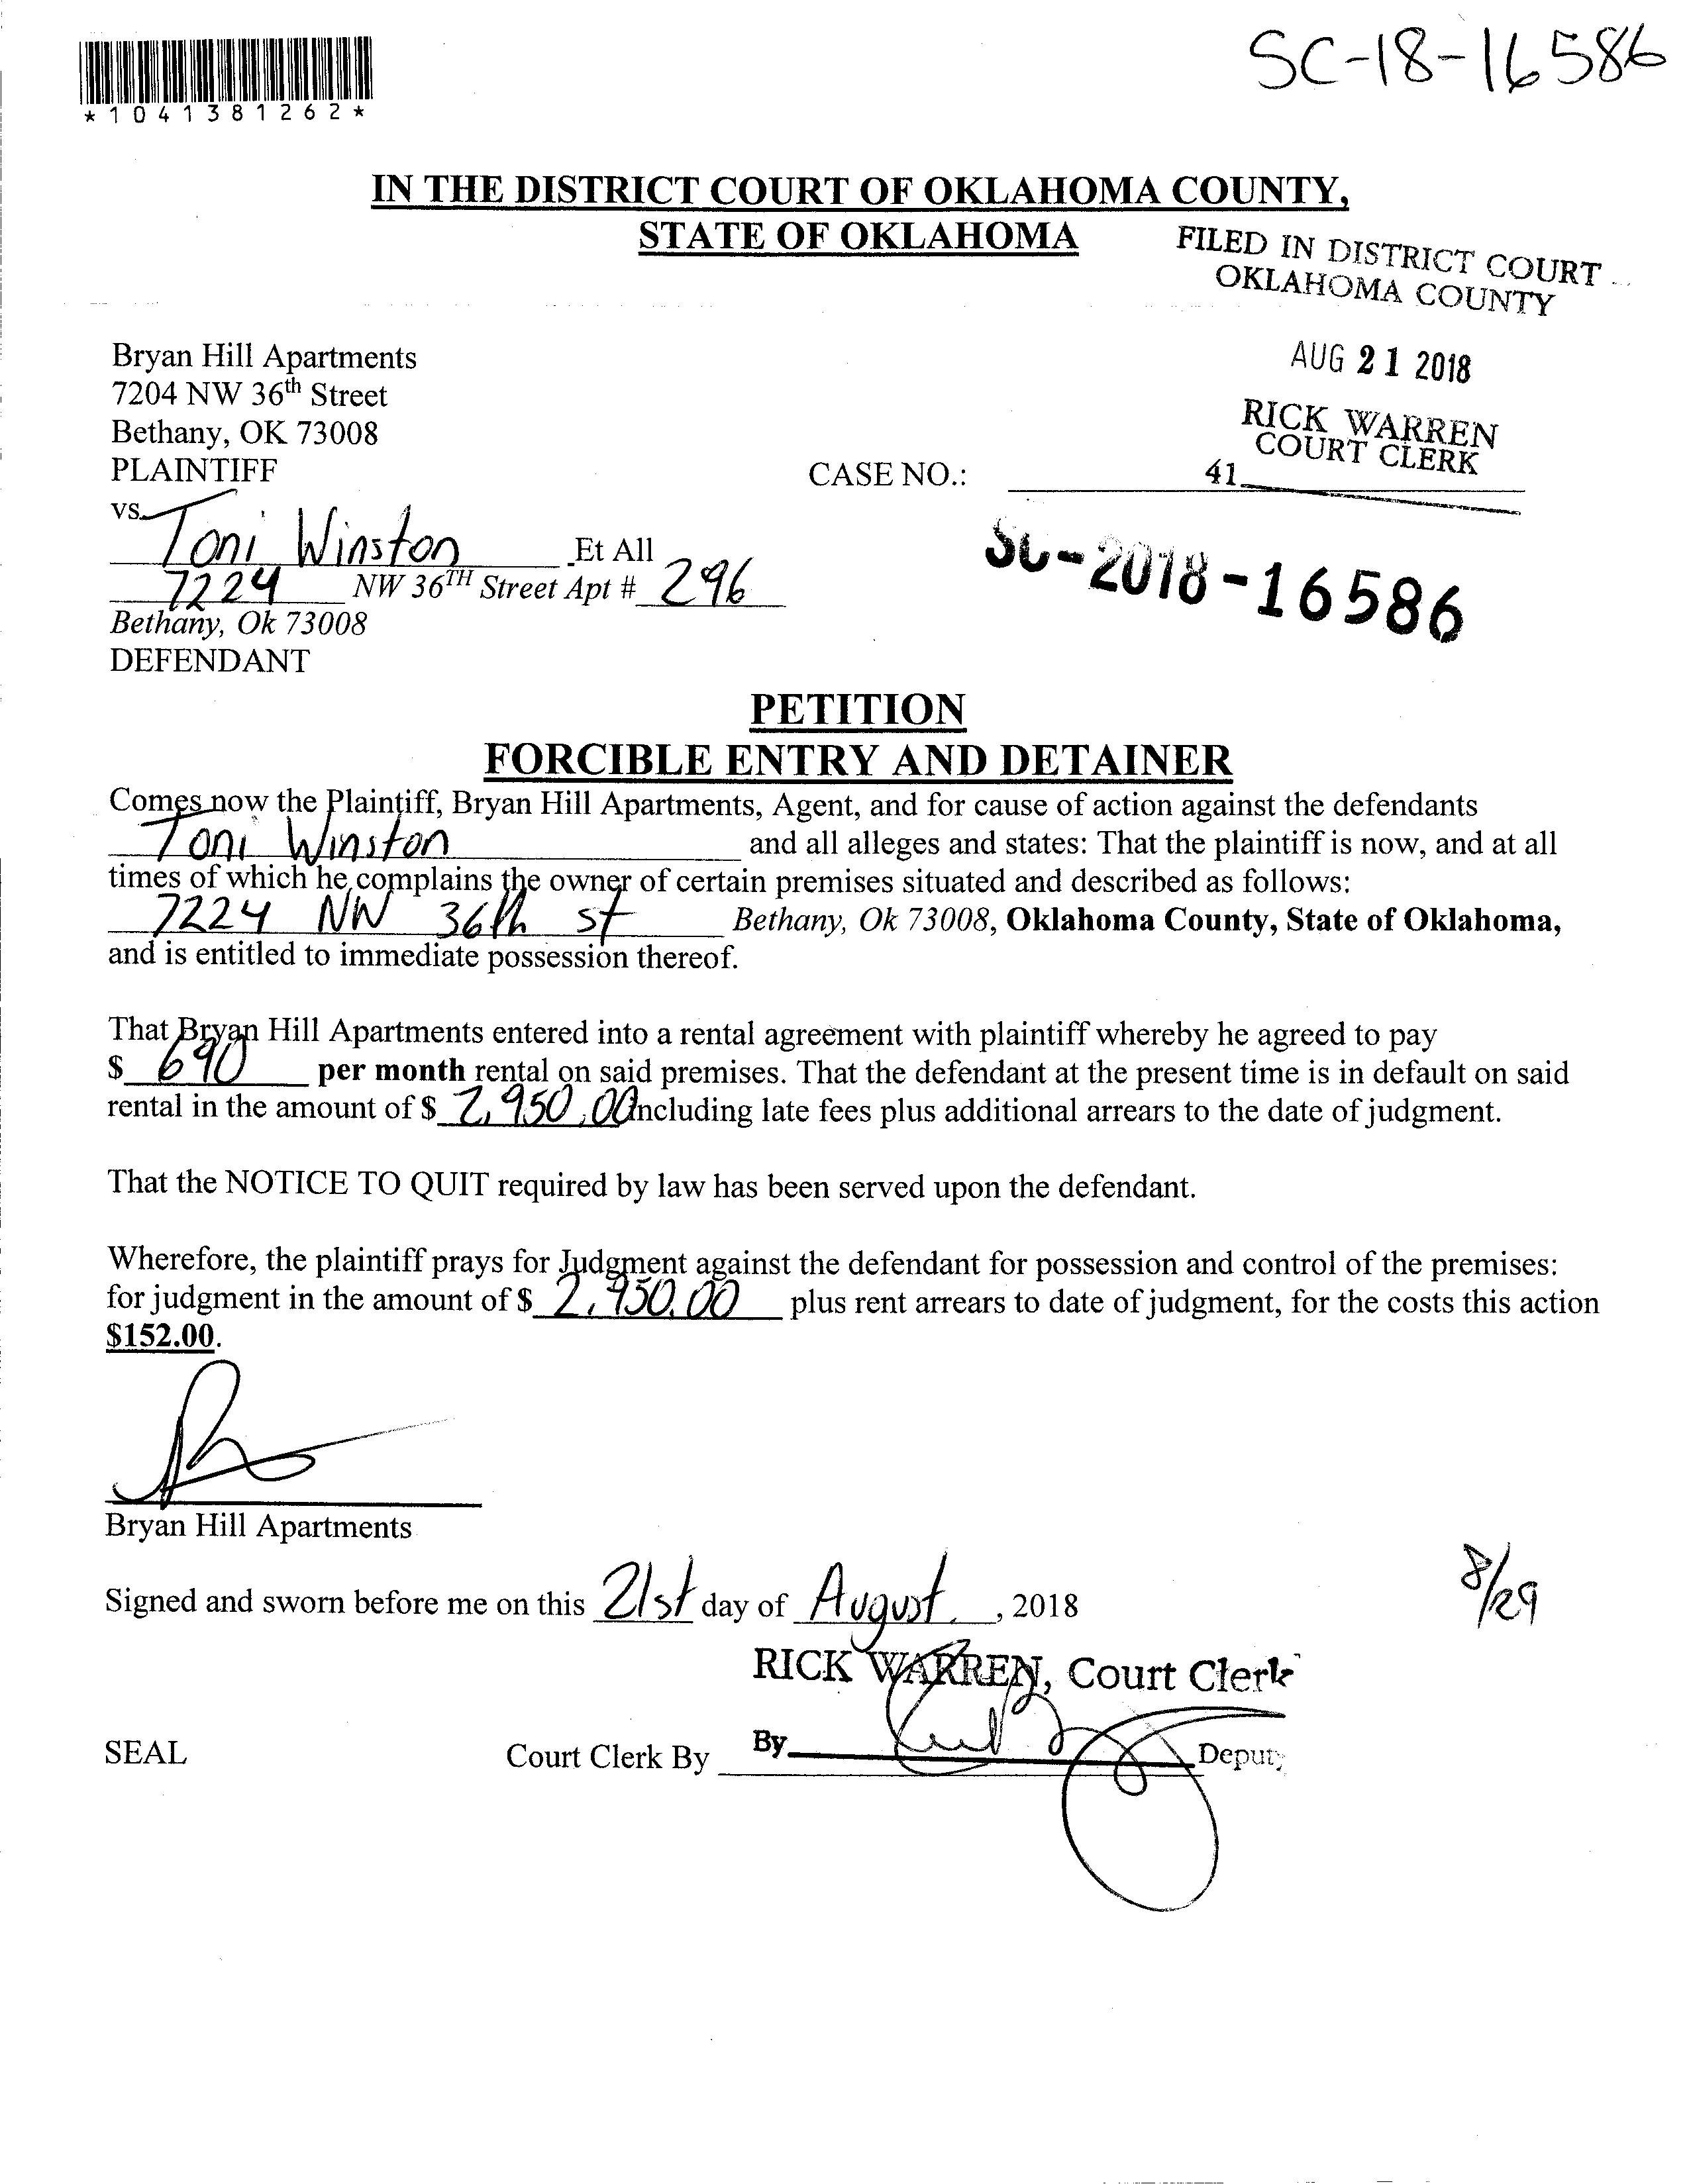 SC-18-16586
*1041381262*
IN THE DISTRICT COURT OF OKLAHOMA COUNTY,
STATE OF OKLAHOMA
FILED IN DISTRICT COURT
OKLAHOMA COUNTY
AUG 21 2018
RICK WARREN
COURT CLERK
41
Bryan Hill Apartments
7204 NW 36th Street
Bethany, OK 73008
PLAINTIFF
CASE NO.:
vs.
Toni Winston Et All
7224 NW 36TH Street Apt # 296
Bethany, Ok 73008
DEFENDANT
SC-2018-16586
PETITION
FORCIBLE ENTRY AND DETAINER
Comes now the Plaintiff, Bryan Hill Apartments, Agent, and for cause of action against the defendants
Toni Winston and all alleges and states: That the plaintiff is now, and at all
times of which he complains the owner of certain premises situated and described as follows:
7224 NW 36th st Bethany, Ok 73008, Oklahoma County, State of Oklahoma,
and is entitled to immediate possession thereof.
That Bryan Hill Apartments entered into a rental agreement with plaintiff whereby he agreed to pay
$ 690 per month rental on said premises. That the defendant at the present time is in default on said
rental in the amount of $ 2,950.00 including late fees plus additional arrears to the date of judgment.
That the NOTICE TO QUIT required by law has been served upon the defendant.
Wherefore, the plaintiff prays for Judgment against the defendant for possession and control of the premises:
for judgment in the amount of $ 2,950.00 plus rent arrears to date of judgment, for the costs this action
$152.00.
Bryan Hill Apartments
Signed and sworn before me on this 21st day of August, 2018
8/29
RICK WARREN, Court Clerk
SEAL Court Clerk By By Deputy